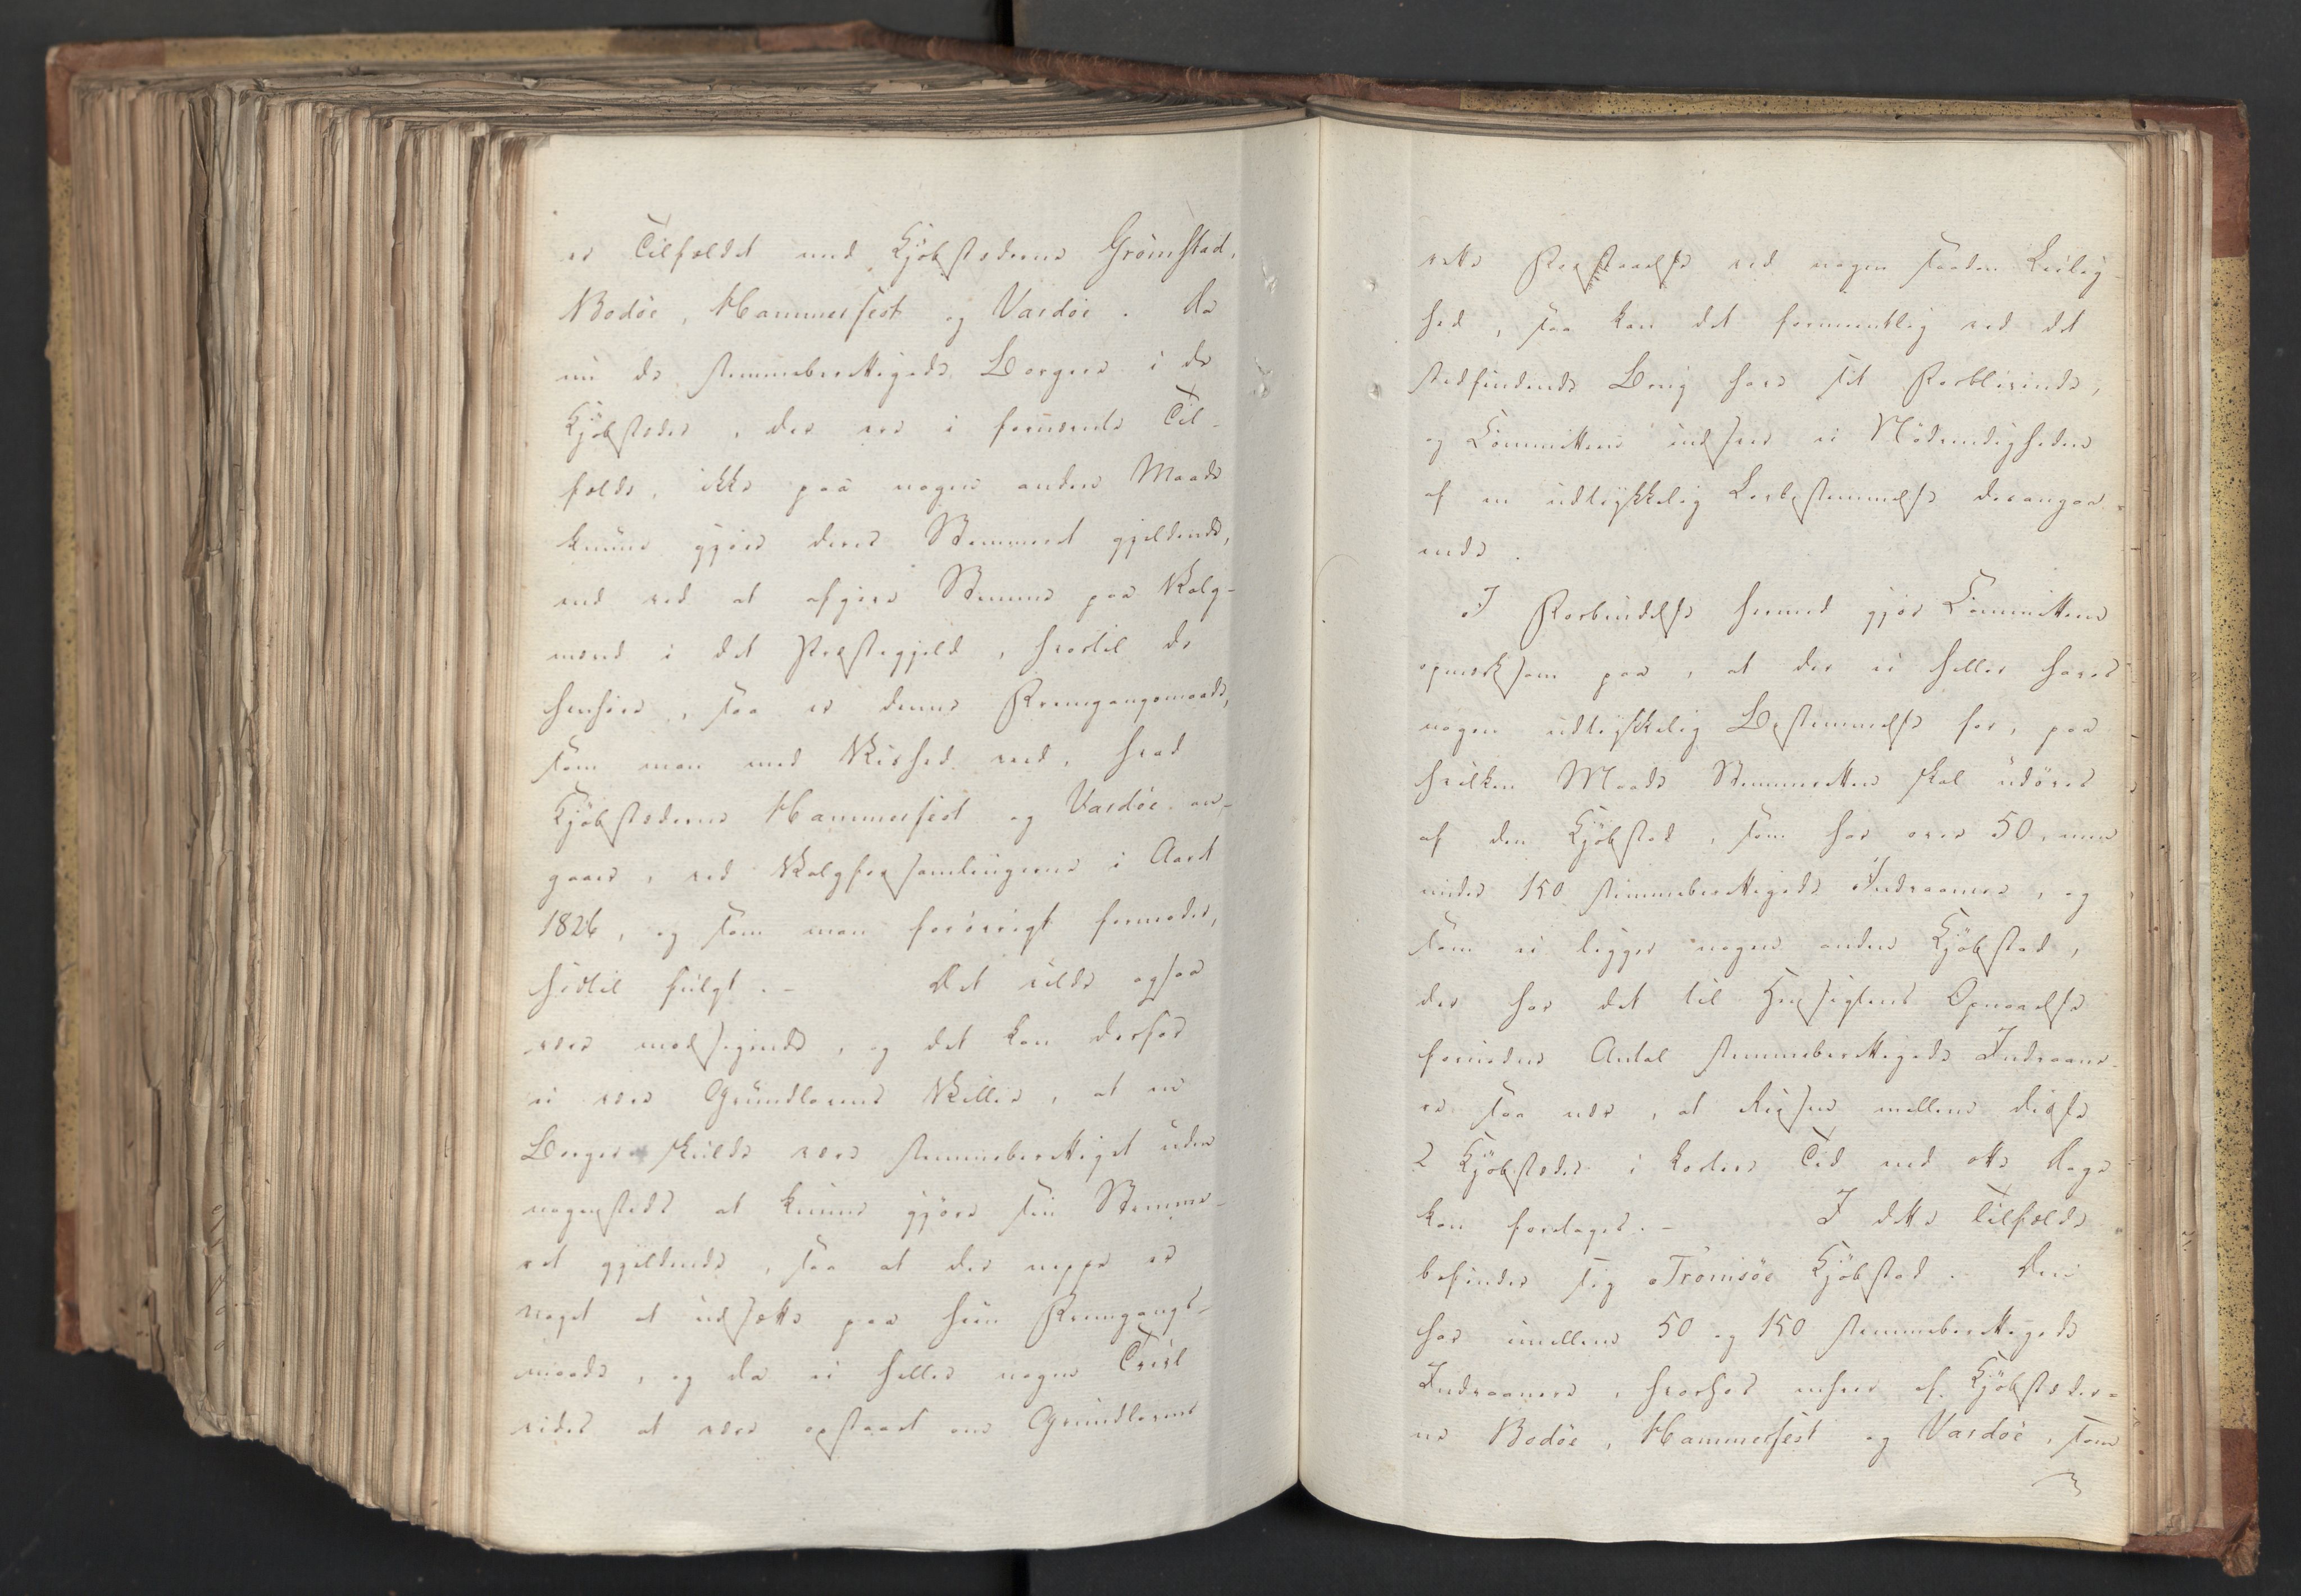 er Tilfældet med Kjøbstæderne Grømstad,
Bodøe, Hammerfest og Vardøe. Da
nu de stemmeberettigede Borgere i de
Kjøbstæder, der ere i fornævnte Til-
fælde, ikke paa nogen anden Maade
kunne gjøre deres Stemmeret gjeldende,
end ved at afgive Stemme paa Valg-
mænd i det Præstegjeld, hvortil de
henhøre, saa er denne Fremgangsmaade,
som man med Vished veed, hvad
Kjøbstæderne Hammerfest og Vardøe an-
gaaer, ved Valgforsamlingerne i Aaret
1826, og som man forøvrigt formoder,
hidtil fulgt. - Det vilde ogsaa
være modsigende, og det kan derfor
ei være Grundlovens Villie, at en
Borger skulde være stemmeberettiget uden
nogensteds at kunne gjøre sin Stemme-
ret gjeldende, saa at der neppe er
noget at udsætte paa hiin Fremgangs-
maade, og da ei heller nogen Tvivl
vides at være opstaaet om Grundlovens
rette Forstaaelse ved nogen saadan Leilig-
hed, saa kan det formeentlig ved det
stedfindende Brug have sit Forblivende,
og Committeen indseer ei Nødvendigheden
af en udtrykkelig Lovbestemmelse derangaa-
ende.
I Forbindelse hermed gjør Committeen
opmærksom paa, at der ei heller haves
nogen udtrykkelig Bestemmelse for, paa
hvilken Maade Stemmeretten skal udøves
af den Kjøbstad, som har over 50, men
under 150 stemmeberettigede Indvaanere, og
som ei ligger nogen anden Kjøbstad,
der har det til Hensigtens Opnaaelse
fornødne Antal stemmeberettigede Indvaane-
re saa nær, at Reisen mellem disse
2 Kjøbstæder i kortere Tid end otte Dage
kan foretages. - I dette Tilfælde
befinder sig Tromsøe Kjøbstad. Den
har imellem 50 og 150 stemmeberettigede
Indvaanere, hvorfor enhver af Kjøbstæder-
ne Bodøe, Hammerfest og Vardøe, som